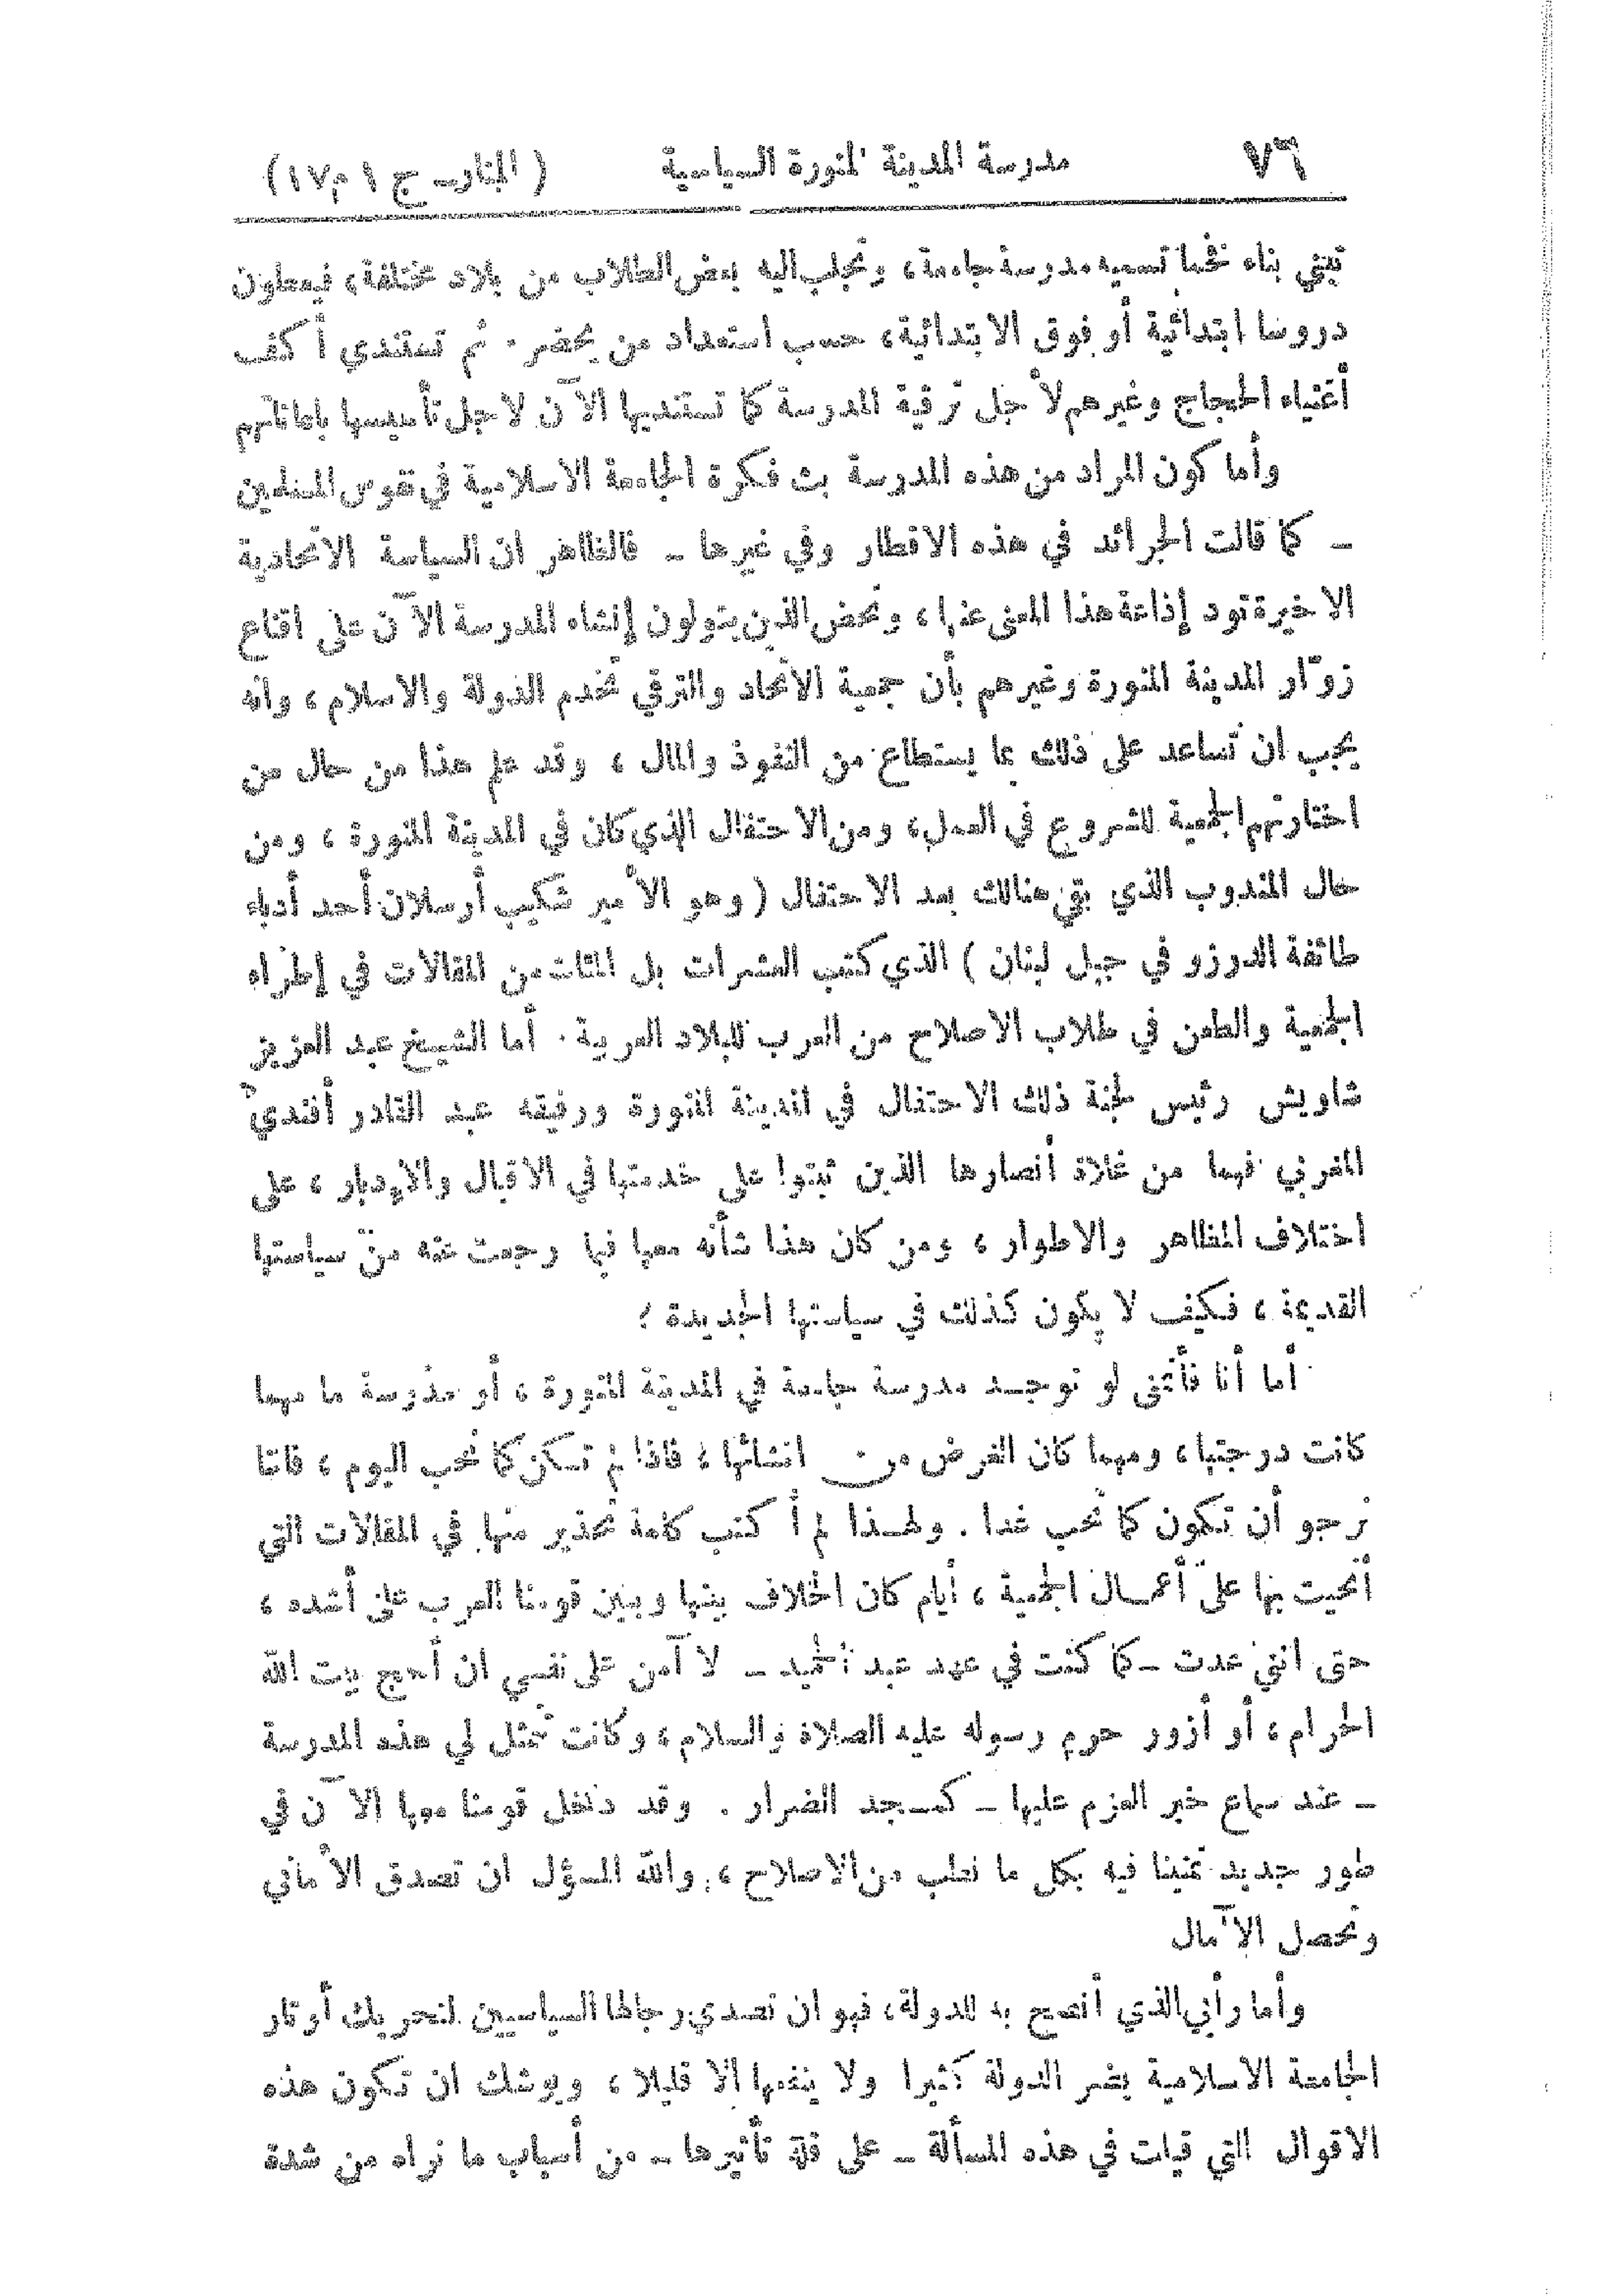 ٧٦ مدرسة المدينة المنورة السياسية ( المنار ـ ج ١ م ١٧ )
تبتني بناء فخما تسميه مدرسة جامعة، وتجلب اليه بعض الطلاب من بلاد مختلفة، فيعطون
دروسا ابتدائية أو فوق الابتدائية، حسب استعداد من يحضر. ثم تستندي أكف
أغنياء الحجاج وغيرهم لأجل ترقية المدرسة كما تستنديها الآن لاجل تأسيسها باعاناتهم
وأما كون المراد من هذه المدرسة بث فكرة الجامعة الاسلامية في نفوس المسلمين
ـ كما قالت الجرائد في هذه الاقطار وفي غيرها ـ فالظاهر ان السياسة الاتحادية
الاخيرة تود إذاعة هذا المعنى عنها، وتحض الذين يتولون إنشاء المدرسة الآن على اقناع
زوّار المدينة المنورة وغيرهم بأن جمعية الاتحاد والترقي تخدم الدولة والاسلام، وانه
يجب ان تساعد على ذلك بما يستطاع من النفوذ والمال، وقد علم هذا من حال من
اختارتهم الجمعية للشروع في العمل، ومن الاحتفال الذي كان في المدينة المنورة، ومن
حال المندوب الذي بقي هنالك بعد الاحتفال ( وهو الأمير شكيب أرسلان أحد أدباء
طائفة الدروز في جبل لبنان ) الذي كتب العشرات بل المئات من المقالات في إطراء
الجمعية والطعن في طلاب الاصلاح من العرب للبلاد العربية. أما الشيخ عبد العزيز
شاويش رئيس لجنة ذلك الاحتفال في المدينة المنورة ورفيقه عبد القادر أفندي
المغربي فهما من غلاة أنصارها الذين ثبتوا على خدمتها في الاقبال والإدبار، على
اختلاف المظاهر والاطوار، ومن كان هذا شأنه معها فيما رجعت عنه من سياستها
القديمة، فكيف لا يكون كذلك في سياستها الجديدة؟
أما أنا فأتمنى لو توجد مدرسة جامعة في المدينة المنورة، أو مدرسة ما مهما
كانت درجتها، ومهما كان الغرض من انشائها، فاذا لم تكن كما نحب اليوم، فاننا
نرجو أن تكون كما نحب غدا. ولهذا لم أكتب كلمة تحذير منها في المقالات التي
أنحيت بها على أعمال الجمعية، أيام كان الخلاف بينها وبين قومنا العرب على أشده،
حتى انني عدت ـ كما كنت في عهد عبد الحميد ـ لا آمن على نفسي ان أحج بيت الله
الحرام، أو أزور حرم رسوله عليه الصلاة والسلام، وكانت تمثل لي هذه المدرسة
ـ عند سماع خبر العزم عليها ـ كمسجد الضرار. وقد دخل قومنا معها الآن في
طور جديد تمنينا فيه بكل ما نطلب من الاصلاح، والله المسؤل ان تصدق الأماني
وتحصل الآمال
وأما رأيي الذي أنصح به للدولة، فهو ان تصدي رجالها السياسيين لتحريك أوتار
الجامعة الاسلامية يضر الدولة كثيرا ولا ينفعها إلا قليلا، ويوشك ان تكون هذه
الاقوال التي قيلت في هذه المسألة ـ على قلة تأثيرها ـ من أسباب ما نراه من شدة